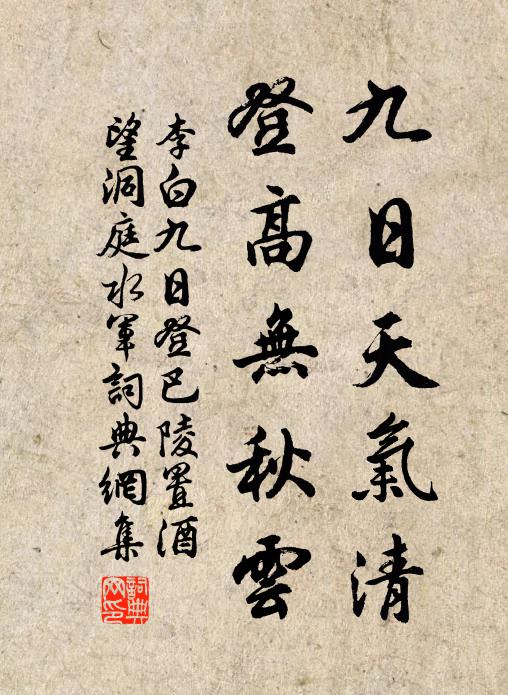 九日天氣清
登高無秋雲
李白九日登巴陵置酒
望洞庭水軍詞典網集
詞典
网印